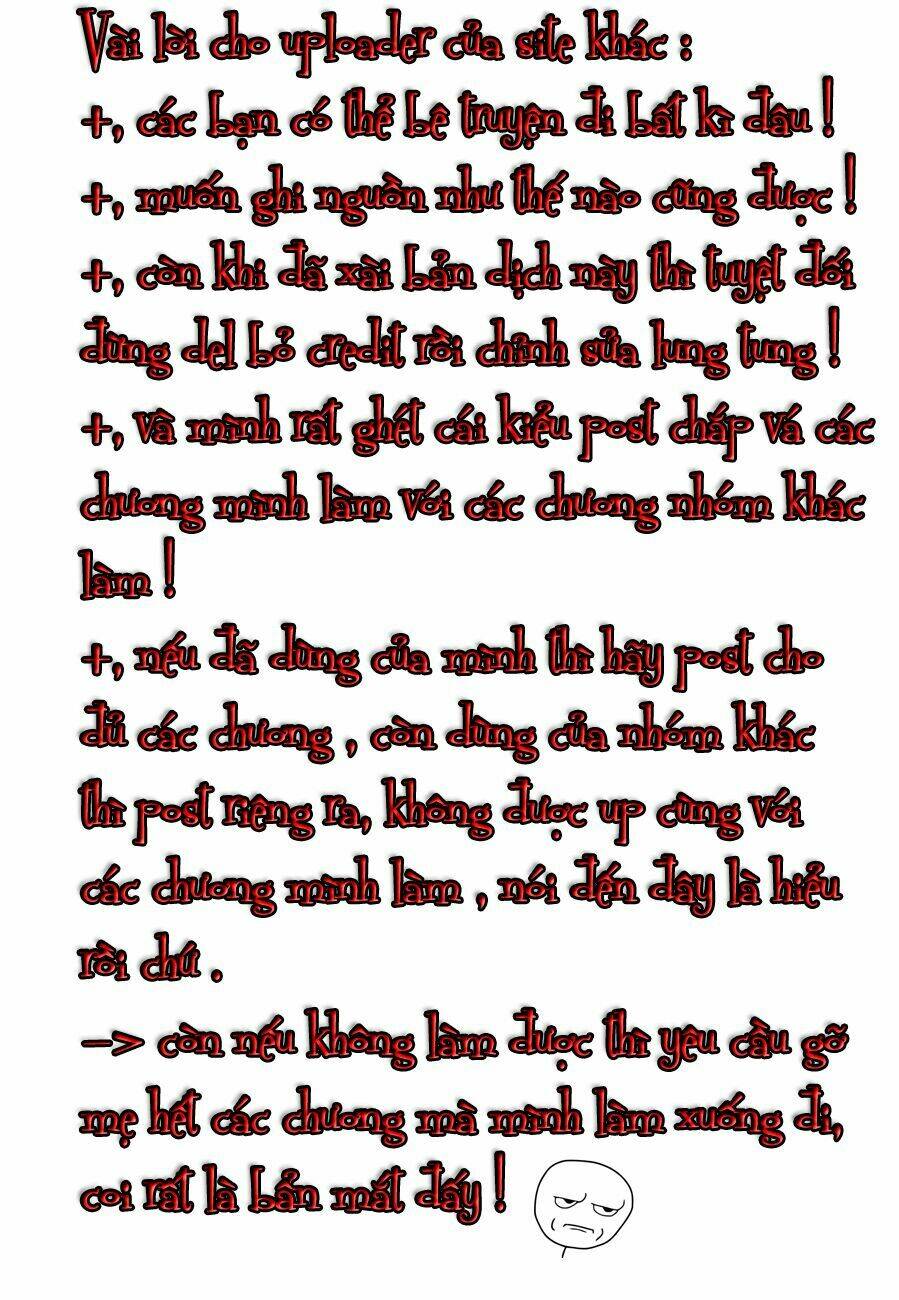 Vài lời cho uploader của site khác :
+, các bạn có thể bê truyện đi bất kì đâu !
+, muốn ghi nguồn như thế nào cũng được !
+, còn khi đã xài bản dịch này thì tuyệt đối
đừng del bỏ credit rồi chỉnh sửa lung tung !
+, và mình rất ghét cái kiểu post chắp vá các
chương mình làm với các chương nhóm khác
làm !
+, nếu đã dùng của mình thì hãy post cho
đủ các chương , còn dùng của nhóm khác
thì post riêng ra, không được up cùng với
các chương mình làm , nói đến đây là hiểu
rồi chứ .
--> còn nếu không làm được thì yêu cầu gỡ
mẹ hết các chương mà mình làm xuống đi,
coi rất là bẩn mắt đấy !